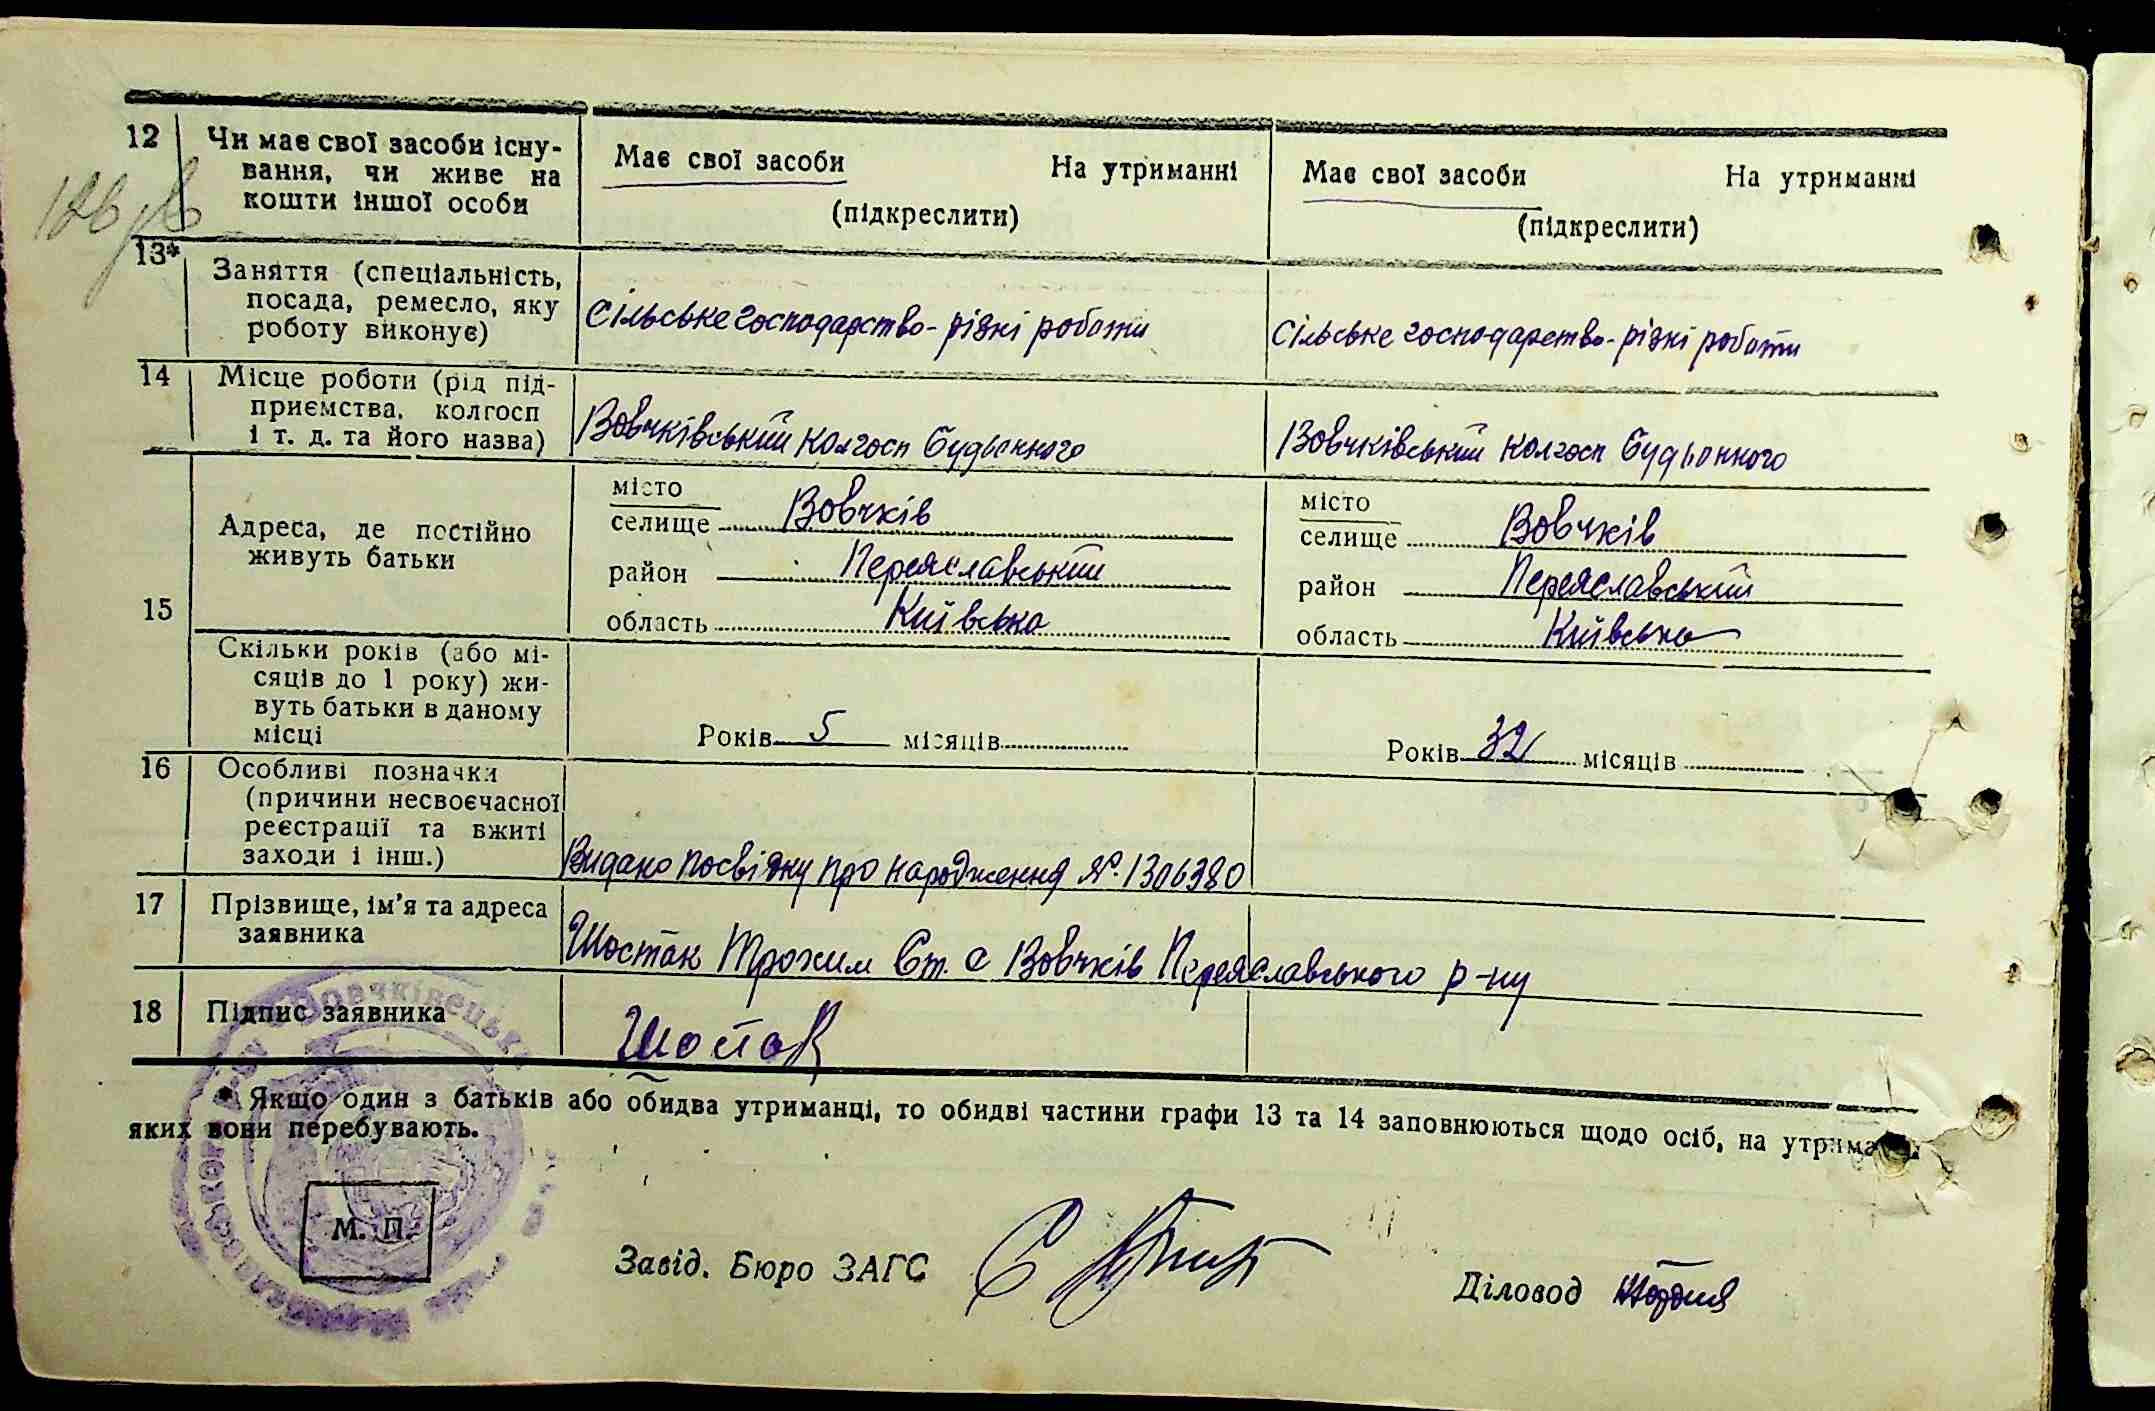 12 Чи має свої засоби існу-
вання, чи живе на
кошти іншої особи
Має свої засоби На утриманні
(підкреслити)
Має свої засоби На утриманні
(підкреслити)
13*
Заняття (спеціальність,
посада, ремесло, яку
роботу виконує)
Сільське господарство - різні роботи
Сільське господарство - різні роботи
14 Місце роботи (рід під-
приємства, колгосп
і т. д. та його назва)
Вовчківський колгосп Будьонного
Вовчківський колгосп Будьонного
15
Адреса, де постійно
живуть батьки
місто
селище Вовчків
район Переяславський
область Київська
місто
селище Вовчків
район Переяславський
область Київська
Скільки років (або мі-
сяців до 1 року) жи-
вуть батьки в даному
місці
Років 5 місяців
Років 32 місяців
16 Особливі позначки
(причини несвоєчасної
реєстрації та вжиті
заходи і інш.)
Видано посвідку про народження №. 1306380
17 Прізвище, ім'я та адреса
заявника
Шостак Трохим Єт. с Вовчків Переяславського р-ну
18 Підпис заявника
Шостак
* Якщо один з батьків або обидва утриманці, то обидві частини графи 13 та 14 заповнюються щодо осіб, на утриманні
яких вони перебувають.
М. П.
Завід. Бюро ЗАГС
Діловод